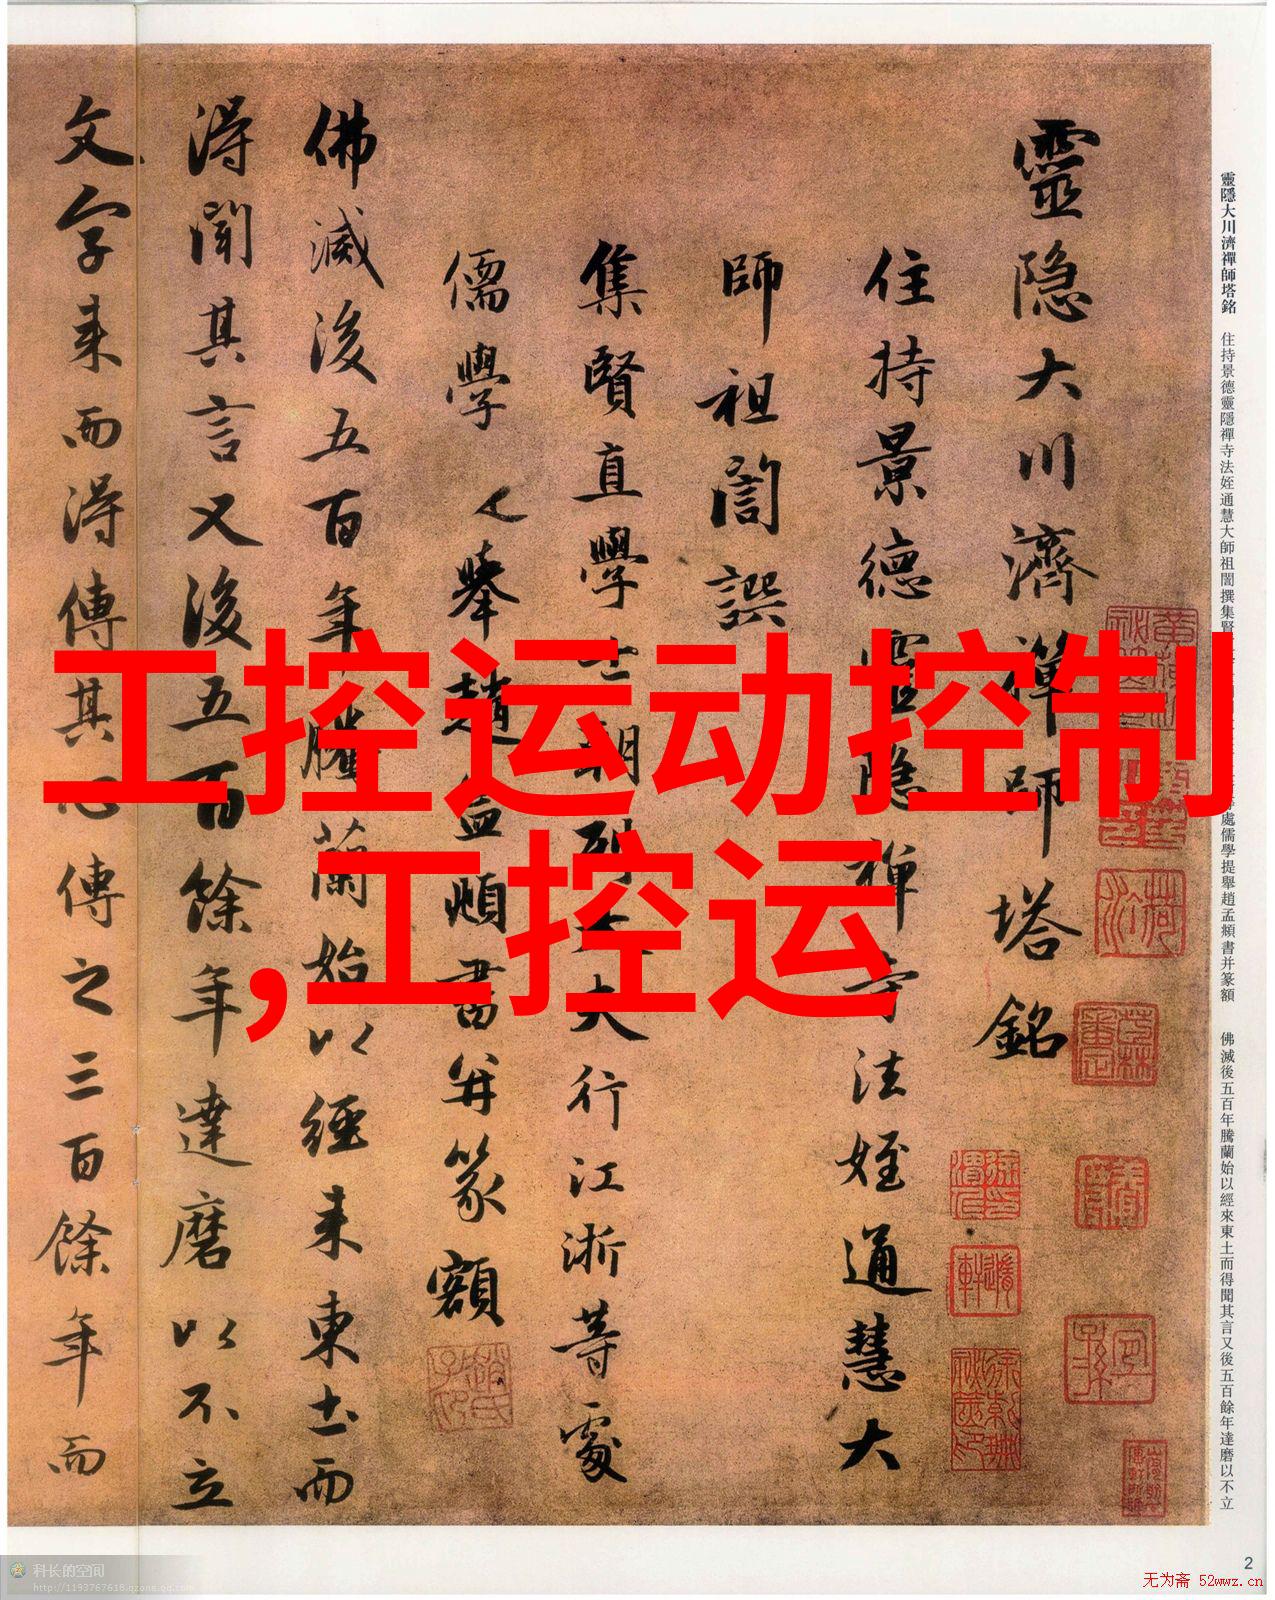 靈隐大川濟禅師塔銘
住持景德霊隐禅寺法姪通慧大
師祖誾譔
集賢直學士朝列大夫行江浙等處
儒學提舉趙孟頫書并篆額
佛滅後五百年騰蘭始以經来東土而
得聞其言又後五百餘年達磨以不立
文字来而得傳其心傳之三百餘年而
靈隱大川濟禪師塔銘 住持景德靈隱禪寺法姪通慧大師祖誾撰集賢
處儒學提舉趙孟頫書并篆額 佛滅後五百年騰蘭始以經來東土而得聞其言又後五百餘年達磨以不立
工控运动控制
,工控运
2
科长的空间
http://1193767618.qzone.qq.com
无为斋 52wwz.cn